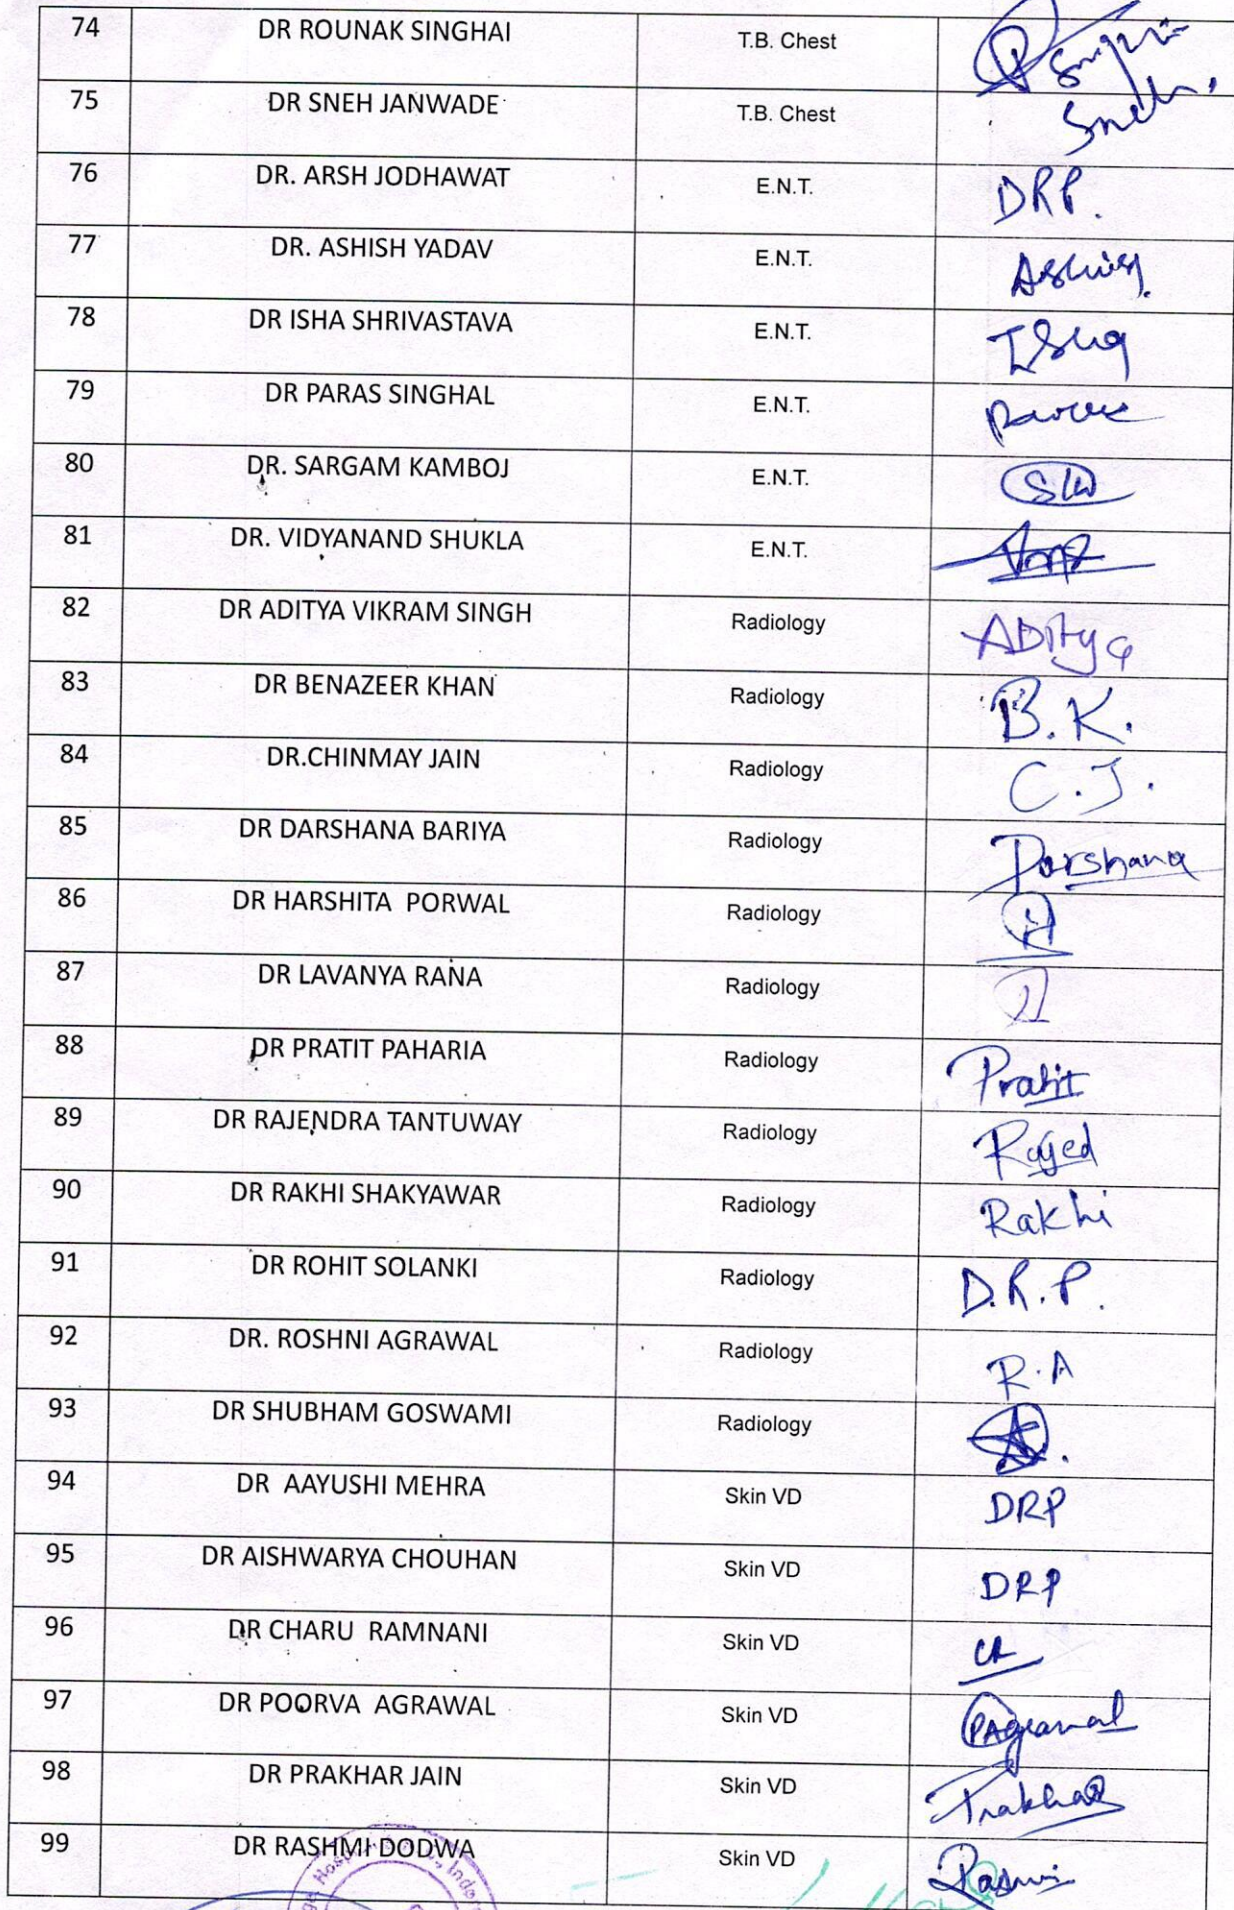 74 DR ROUNAK SINGHAI T.B. Chest
75 DR SNEH JANWADE T.B. Chest Sneh
76 DR. ARSH JODHAWAT E.N.T. DRP.
77 DR. ASHISH YADAV E.N.T. Ashish
78 DR ISHA SHRIVASTAVA E.N.T. Isha
79 DR PARAS SINGHAL E.N.T. Paras
80 DR. SARGAM KAMBOJ E.N.T.
81 DR. VIDYANAND SHUKLA E.N.T.
82 DR ADITYA VIKRAM SINGH Radiology ADitya
83 DR BENAZEER KHAN Radiology B.K.
84 DR.CHINMAY JAIN Radiology C.J.
85 DR DARSHANA BARIYA Radiology Darshana
86 DR HARSHITA PORWAL Radiology H
87 DR LAVANYA RANA Radiology
88 DR PRATIT PAHARIA Radiology Pratit
89 DR RAJENDRA TANTUWAY Radiology
90 DR RAKHI SHAKYAWAR Radiology Rakhi
91 DR ROHIT SOLANKI Radiology D.R.P.
92 DR. ROSHNI AGRAWAL Radiology R.A
93 DR SHUBHAM GOSWAMI Radiology
94 DR AAYUSHI MEHRA Skin VD DRP
95 DR AISHWARYA CHOUHAN Skin VD DRP
96 DR CHARU RAMNANI Skin VD CR
97 DR POORVA AGRAWAL Skin VD PAgrawal
98 DR PRAKHAR JAIN Skin VD Prakhar
99 DR RASHMI DODWA Skin VD Rashmi